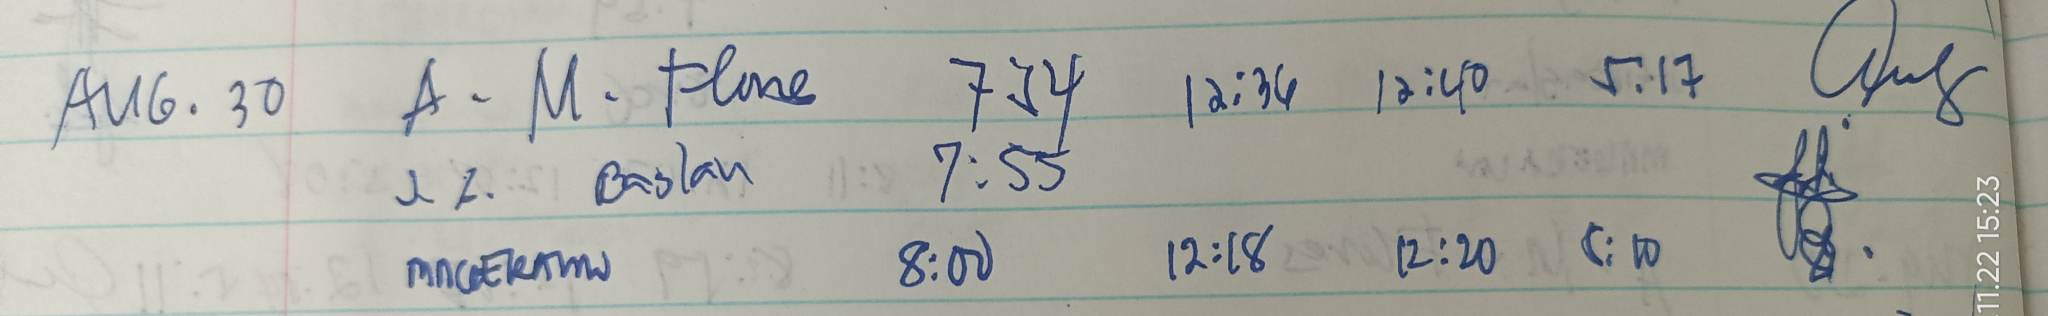 AUG. 30 A. M. Flores 7:54 12:36 12:40 5:17
J. L. Baslan 7:55
8:00 12:18 12:20 5:10
11.22 15:23